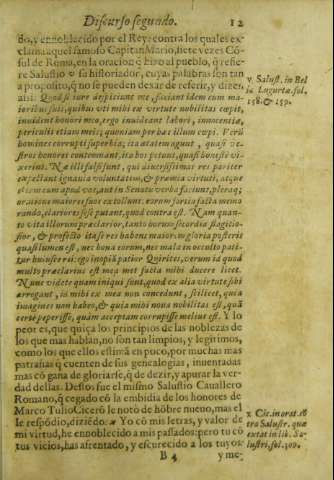 Discurso segundo. 12
do, y ennoblecido por el Rey: contra los quales ex-
clama aquel famoso Capitan Mario, siete vezes Cõ-
sul de Roma, en la oracion q̃ hizo al pueblo, q̃ refie-
re Salustio v su historiador, cuyas palabras son tan
a proposito, q̃ no se pueden dexar de referir, y dize
assi: Quod si iure despiciunt me, faciant idem cum ma-
ioribus suis, quibus vti mihi ex virtute nobilitas cœpit,
inuident honori meo, ergo inuideant labori, innocentiæ,
periculis etiam meis, quoniam per hæc illum cepi. Verũ
homines corrupti superbia, ita ætatem agunt, quasi ve-
stros honores contemnant, ita hos petunt, quasi honeste vi-
xerint. Næ illi falsi sunt, qui diuersissimas res pariter
expectant ignauia voluptatem, & præmia virtutis, atque
etiam cum apud vos, aut in Senatu verba faciunt, pleraq;
oratione maiores suos extollunt, eorum fortia facta memo
rando, clariores sese putant, quod contra est. Nam quan-
to vita illorum præclarior, tanto horum socordia flagitio-
sior, & profecto ita se res habet: maiorum gloria posteris
quasi lumen est, nec bona eorum, nec mala in occulto pati-
tur huiusce rei ego inopiã patior Quirites, verum id quod
multo præclarius est mea met facta mihi dicere licet.
Nunc videte quam iniqui sunt, quod ex alia virtute sibi
arrogant, id mihi ex mea non concedunt, scilicet, quia
imagines non habeo, & quia mihi noua nobilitas est, quã
certe peperisse, quàm acceptam corrupisse melius est. Y lo
peor es, que quiça los principios de las noblezas de
los que mas hablan, no son tan limpios, y legitimos,
como los que ellos estimã en poco, por muchas mas
patrañas q̃ cuenten de sus genealogias, inuentadas
mas cõ gana de gloriarse, q̃ de dezir, y apurar la ver-
dad dellas. Destos fue el mismo Salustio Cauallero
Romano, q̃ cegado cõ la embidia de los honores de
Marco Tulio Cicerõ le notò de hõbre nueuo, mas el
le respõdio, diziẽdo: x Yo cõ mis letras, y valor de
mi virtud, he ennoblecido a mis passados: pero tu cõ
tus vicios, has afrentado, y escurecido a los tuyos:
B 4 y me-
v Salust. in Bel
lo Iugurtæ. fol.
158. & 159.
x Cic. in orat. cõ
tra Salustr. quæ
extat in lib. Sa-
lustri. fol. 300.